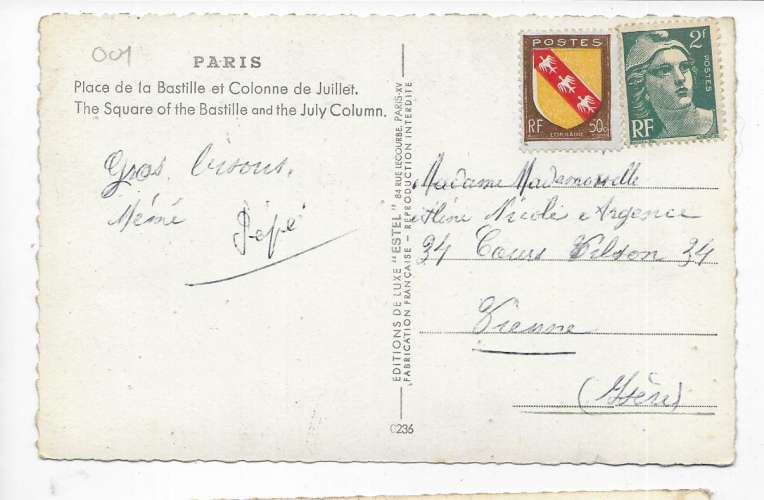 001
PARIS
Place de la Bastille et Colonne de Juillet.
The Square of the Bastille and the July Column.
Gros bisous.
Mémé
Pépé
EDITIONS DE LUXE "ESTEL" 84 RUE LECOURBE, PARIS-XV
FABRICATION FRANÇAISE - REPRODUCTION INTERDITE
C236
POSTES
RF
LORRAINE
50c
2f
POSTES
RF
Madame Mademoiselle
Nicole Argence
34 Cours Wilson 34
Vienne
(Isère)